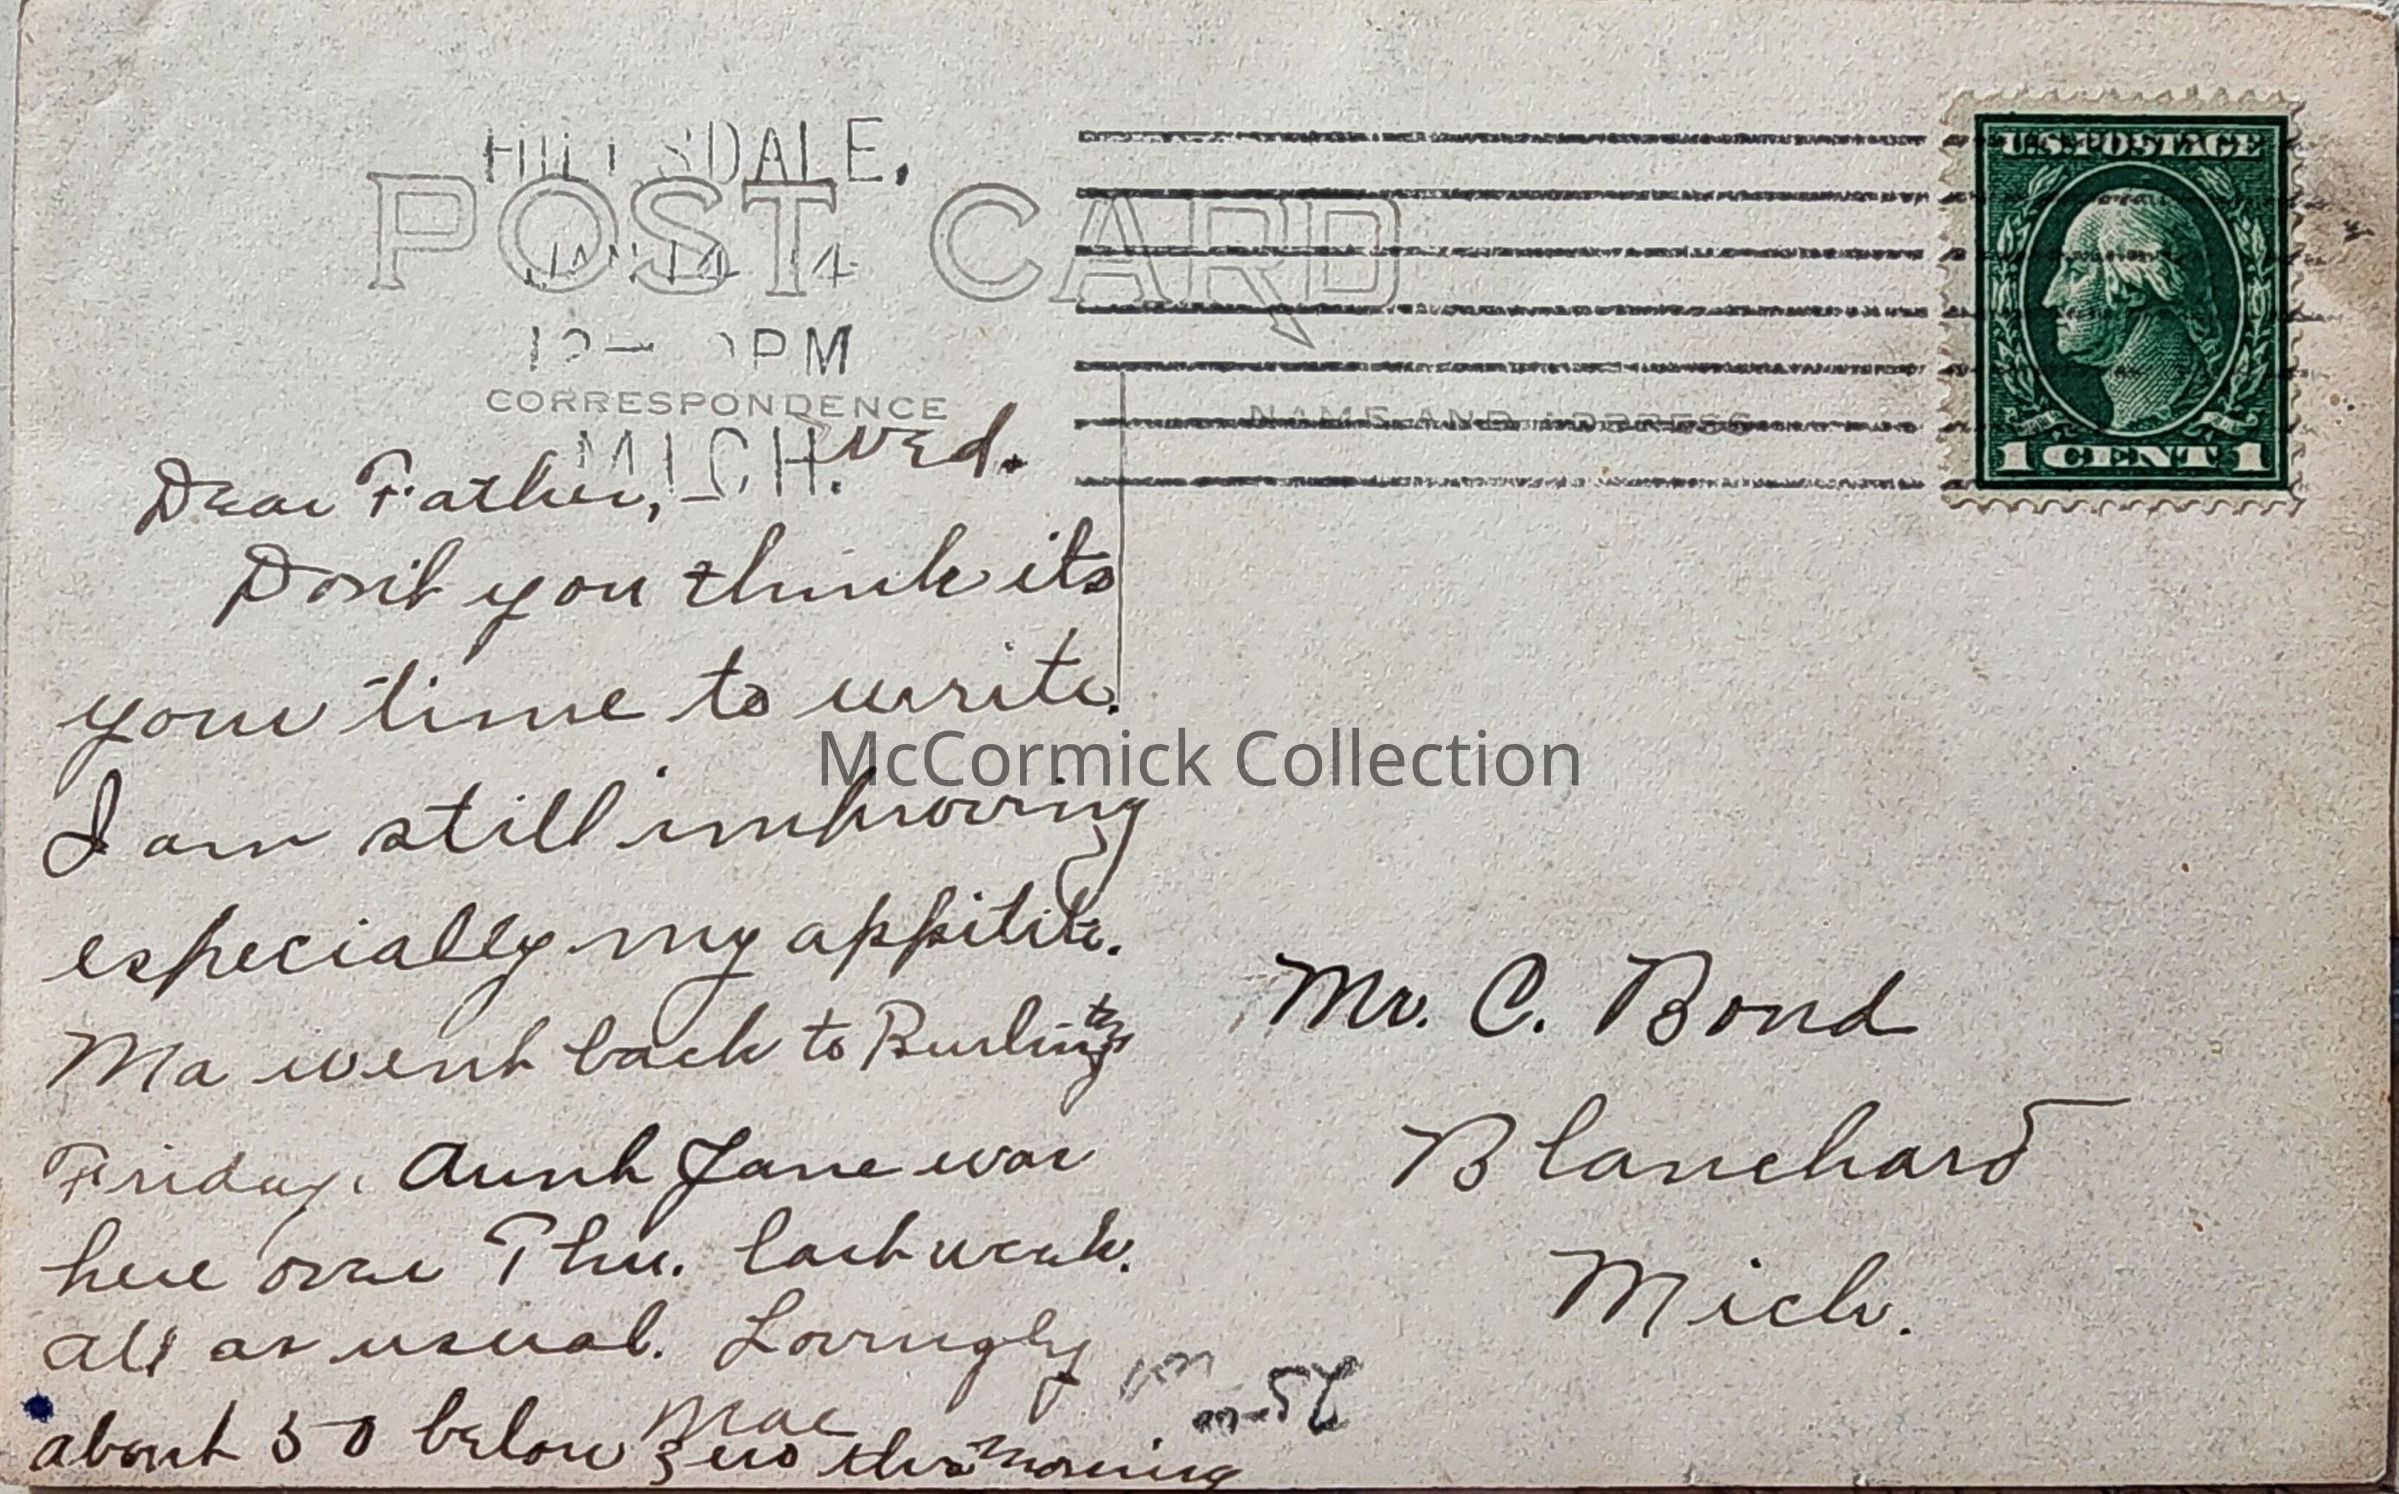 HILLSDALE,
POST CARD
JAN 14 14
12— PM
CORRESPONDENCE
NAME AND ADDRESS
MICH.
U.S. POSTAGE
1 CENT 1
Wed.
Dear Father,
Don't you think its
your time to write.
I am still improving
especially my appitite.
Ma went back to Burlington
Friday. Aunt Jane was
here over Thu. last week.
All as usual. Lovingly
Mae
about 50 below zero this morning
Mr. C. Bond
Blanchard
Mich.
McCormick Collection